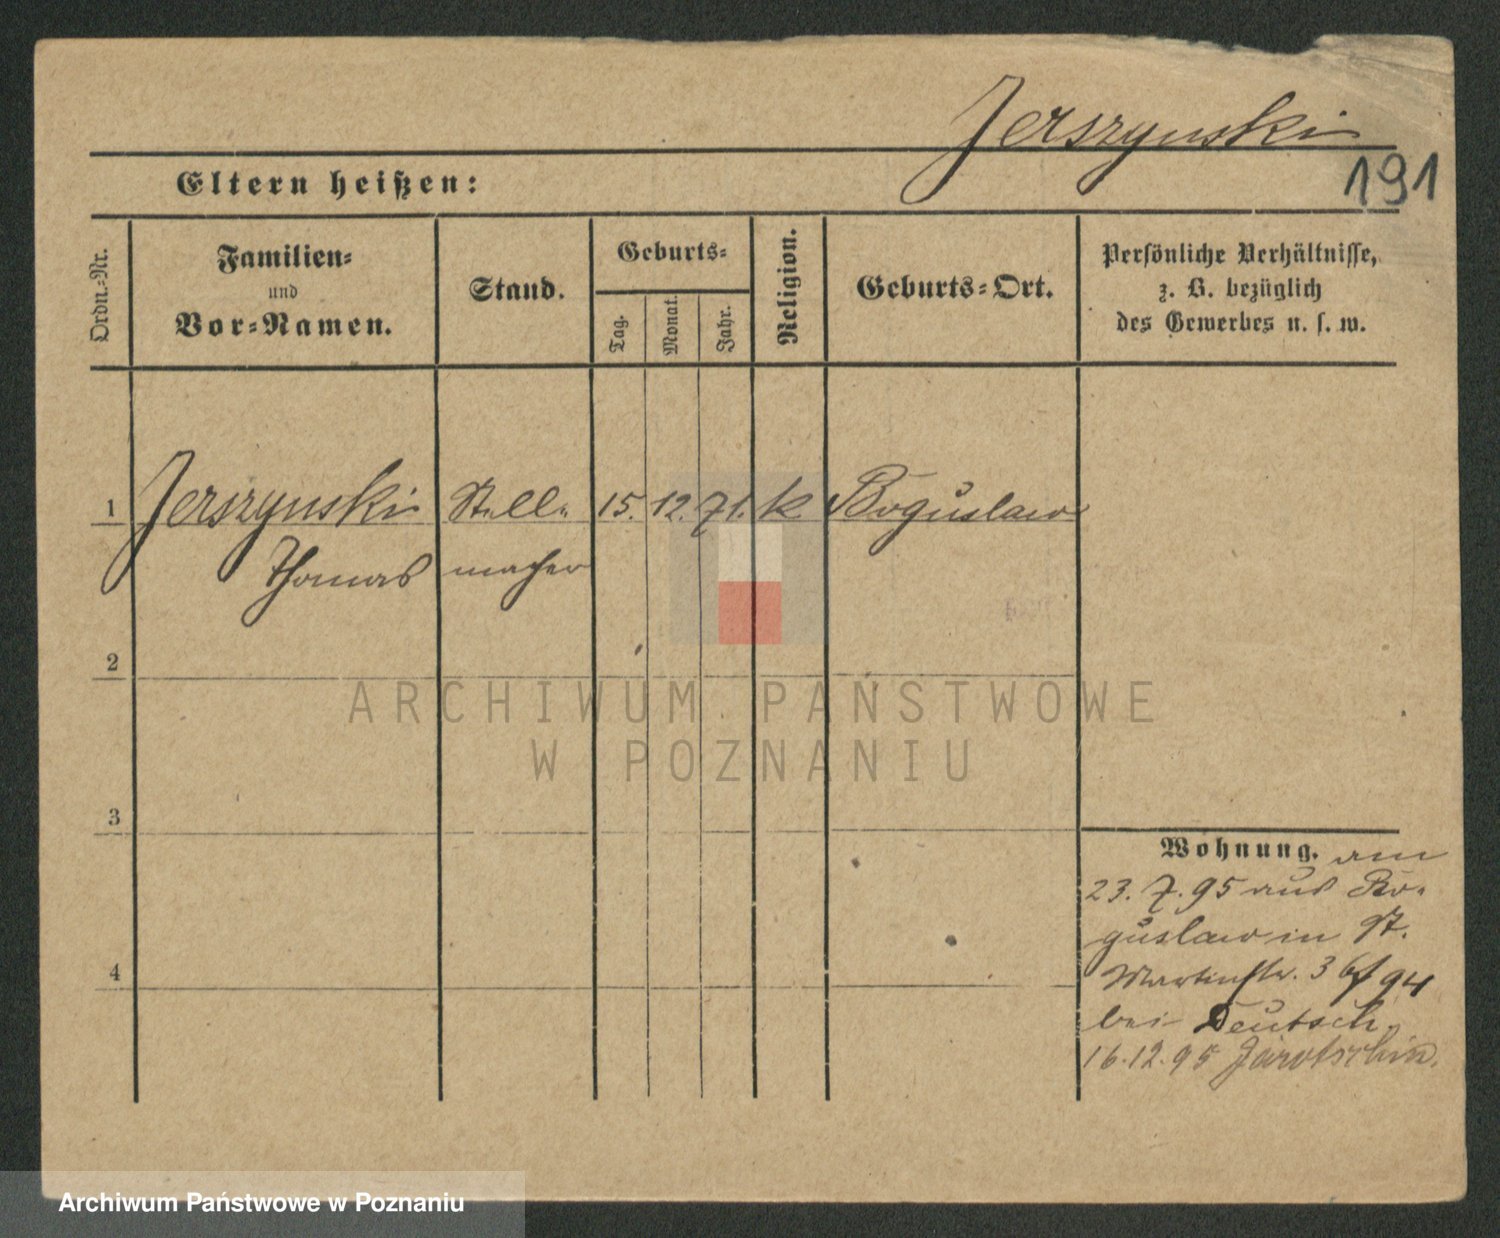 Jerszynski
191
Eltern heißen:
Ordn.-Nr.
Familien-
und
Vor-Namen.
Stand.
Geburts-
Tag.
Monat.
Jahr.
Religion.
Geburts-Ort.
Persönliche Verhältnisse,
z. B. bezüglich
des Gewerbes u. s. w.
1 Jerszynski Stell- 15. 12. 71. k Boguslaw
Thomas macher
2
ARCHIWUM PAŃSTWOWE
W POZNANIU
3
Wohnung. am
23. 7. 95 aus Bo-
guslaw in St.
Martinstr. 94
bei Deutsch.
16.12.95 Jarotschin.
4
Archiwum Państwowe w Poznaniu